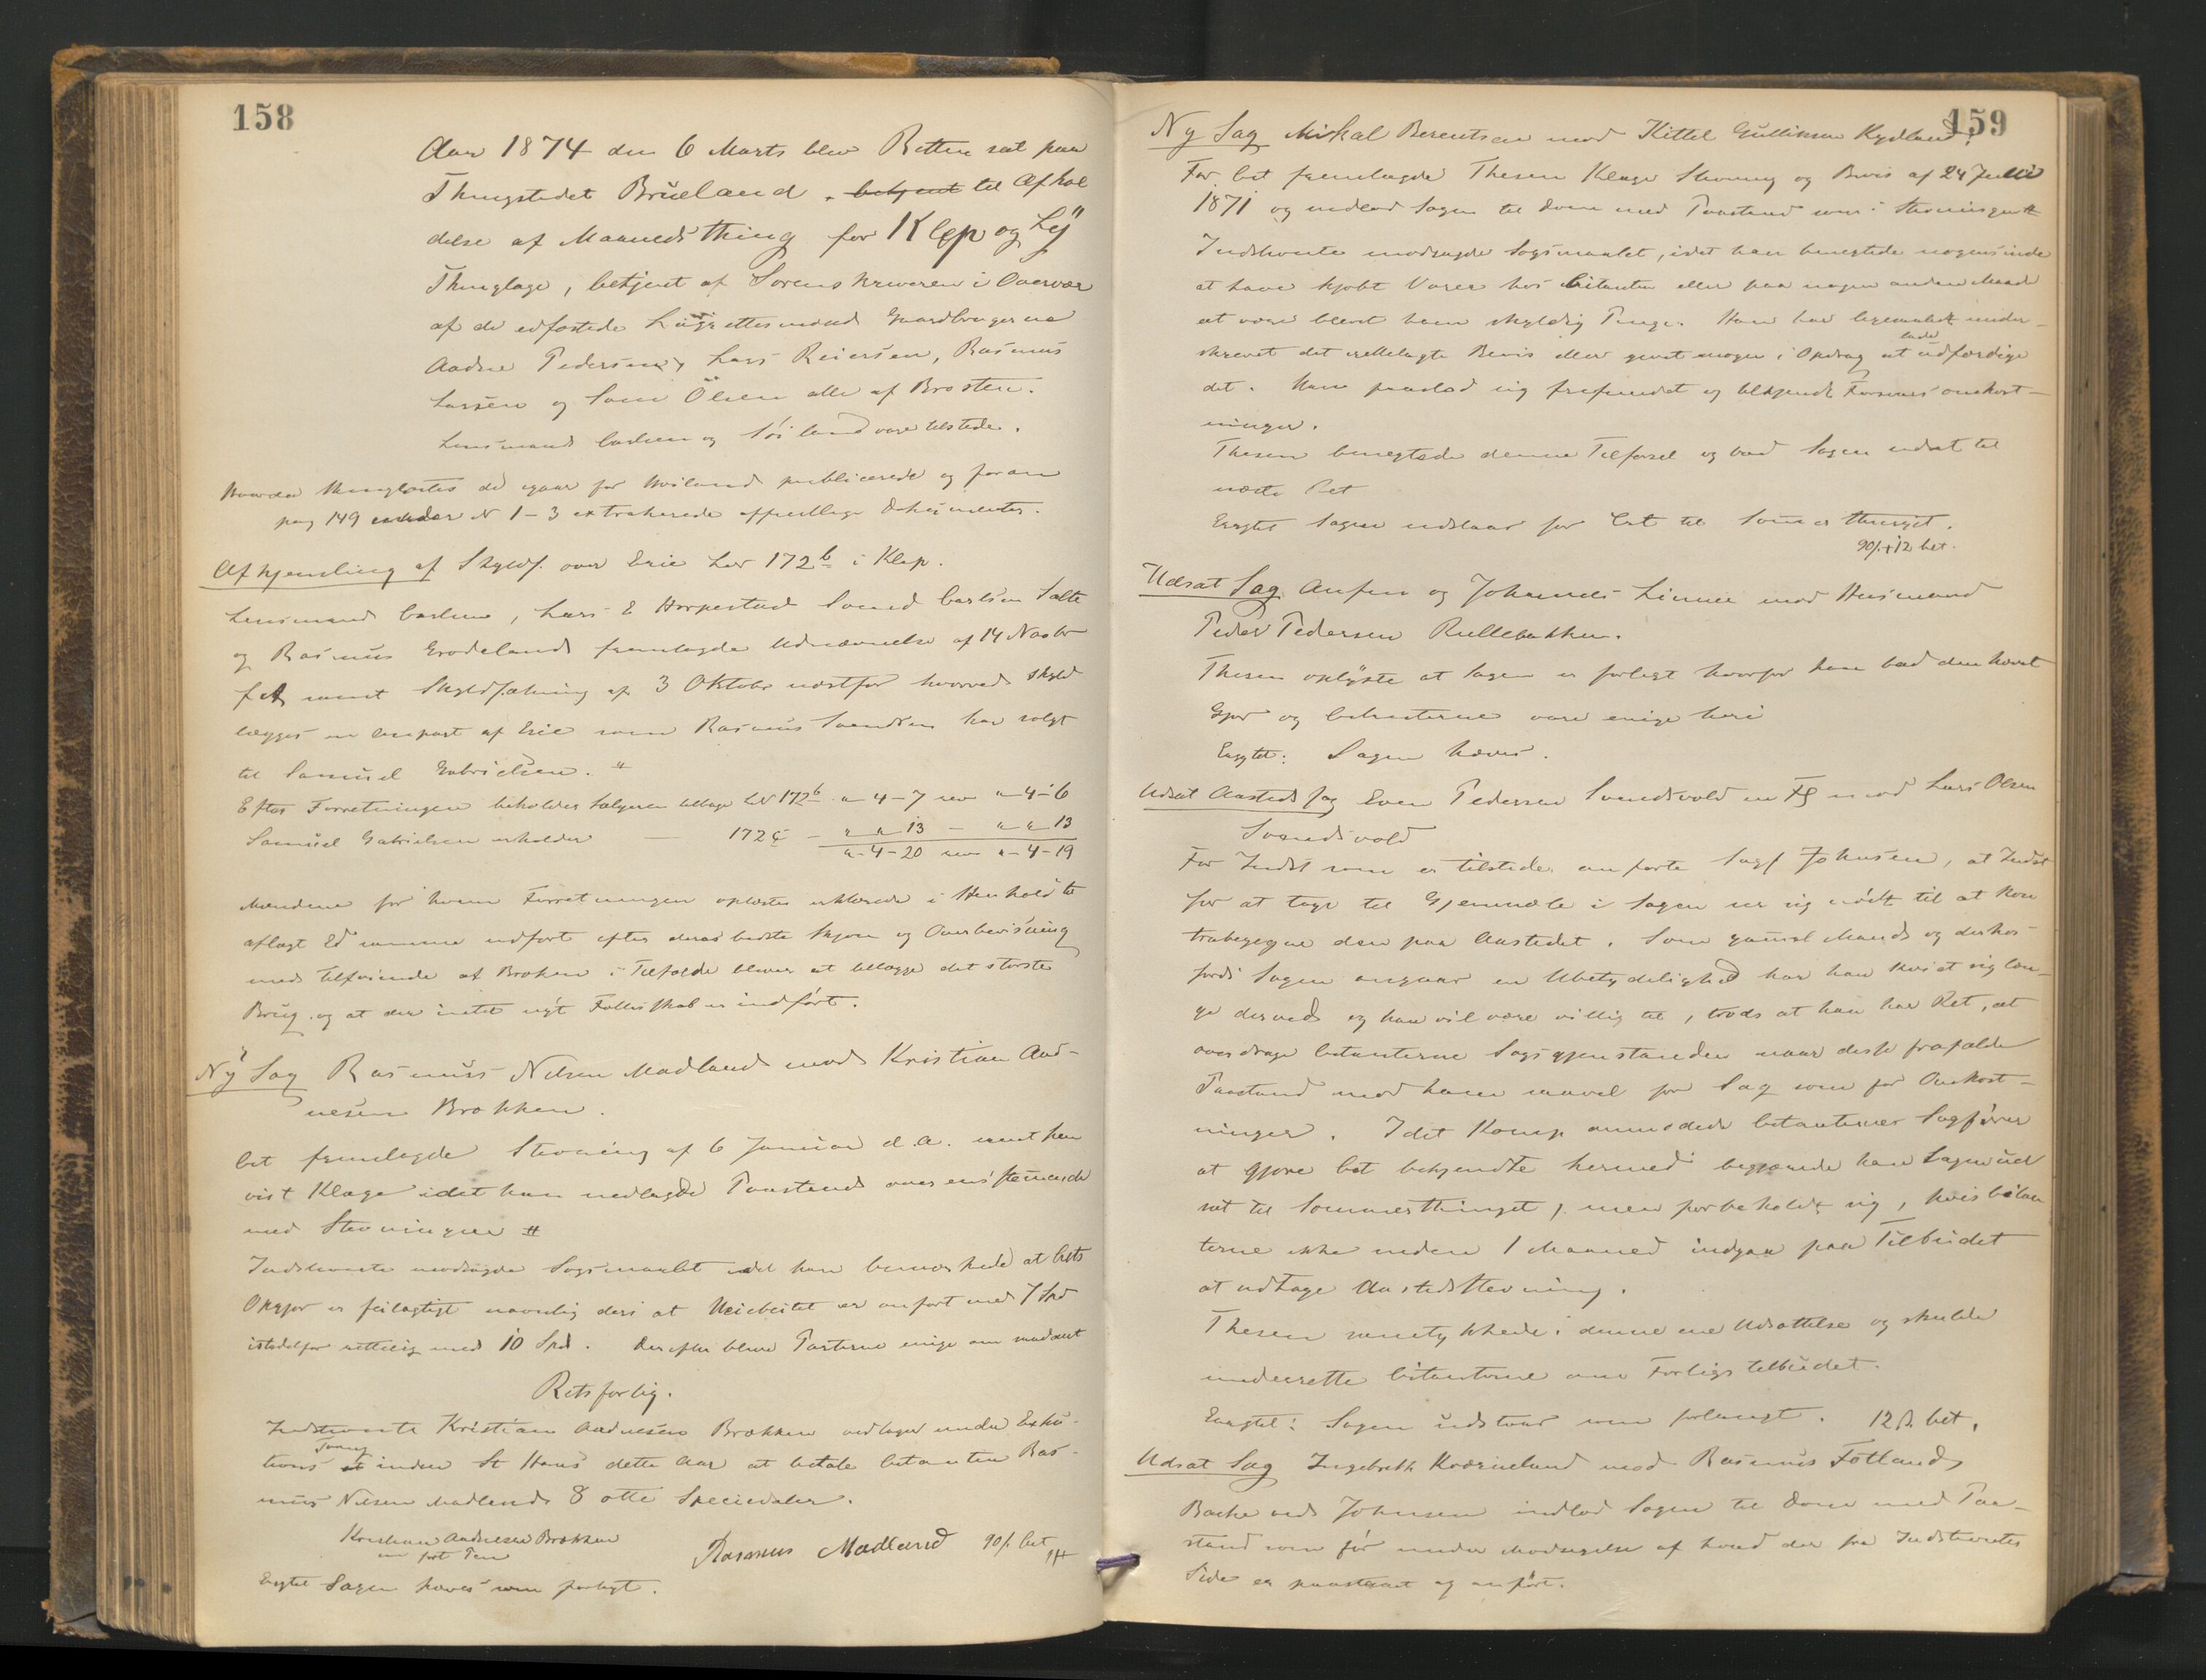 158
Aar 1874 den 6 Marts blev Retten sat paa
Thingstedet Brueland, betjent til Afhol
delse af Maanedsthing for Klep og Ly
Thinglage, betjent af Sorenskriveren i Overvær
af de edfæstede Laugrettesmænd Gaardbrugerne
Aadne Pedersen, Lars Reiersen, Rasmus
Larsen og Olsen alle af Brosten.
Lensmænd Carlsen og Söiland vare tilstede.
Hvorda thinglæstes de igaar for publicerede og foran
pag 149 under N 1-3 extraherede offentlige Dokumenter.
Afhjemling af Skyldf. over Erie Lnr 172b i Klep.
Lensmand Carlsen, Lars E Horpestad Carlsen Salte
og Rasmus Grødeland fremlagde Udnævnelse af 14 Novbr
f A samt Skyldsætning af 3 Oktobr næstfor hvorved skyld
lægges en Anpart af Erie som Rasmus Svendsen har solgt
til Samuel Gabrielsen. #
Efter Forretningen beholder Sælgeren tilbage LN 172b " 4-7 rev " 4-6
Samuel Gabrielsen erholder — 172c - " " 13 — " " 13
"-4-20 rev "-4-19
Mændene for hvem Forretningen oplæstes erklærede i Henhold til
aflagt Ed samme udført efter deres bedste Skjøn og Overbevisning
med Tilføiende at Brøken i Tilfælde bliver at tillægge det største
Brug og at der intet nyt Fællesskab er indført.
Ny Sag Rasmus Nilsen Madland mod Kristian Aad-
nesen Brækken.
Cit fremlagde Stevning af 6 Januar d. A. samt hen
vist Klage idet han nedlagde Paastand overensstemmende
med Stevningen #
Indstevnte modsagde Sogsmaalet idet han bemærkede at Cits
Opgjør er feilagtigt navnlig deri at er anført med 7 Spd
istedetfor rettelig med 10 Spd. Derefter bleve Parterne enige om saadant
Retsforlig.
Indstevnte Kristian Aadnesen Brækken vedtager under Exku-
tions Tvang inden St Hans dette Aar at betale Citanten Ras-
mus Nilsen Madland 8 otte Speciedaler.
Kristian Aadnesen Brækken
m ført Pen
Rasmus Madland 90 / bet
Eragtet Sagen hæves som forligt.
159
Ny Sag Mikal Berentsen mod Kittel Gulliksen Kydland.
For Cit fremlagde Thesen Klage Stevning og Bevis af 24 Juli
1871 og indlod Sagen til Doms med Paastand som i Stevningen #
Indstevnte modsagde Sogsmaalet, idet han benegtede nogensinde
at have kjøbt Varer hos Citanten eller paa nogen anden Maade
at være blevet ham skyldig Penge. Han har ligesaalidt under-
skrevet det irettelagte Bevis eller givet nogen i Opdrag at lade udfærdige
det. Han paastod sig frifundet og tilkjendt Forsvarsomkost-
ninger.
Thesen benegtede denne Tilførsel og bad Sagen udsat til
næste Ret
Eragtet Sagen udstaar for Cit til Sommerthinget.
90 /. + 12 bet.
Udsat Sag Anfin og Johannes Linnee mod Husmand
Peder Pedersen Rullebakken.
Thesen oplyste at Sagen er forligt hvorfor han bad den hævet
Gjør og Citanterne vare enige heri
Eragtet: Sagen hæves.
Udsat Aasteds Sag Even Pedersen Svendsvold m Fl mod Lars Olsen
Svendsvold
For Indst som er tilstede anførte Sagf Johnsen, at Indst
for at tage til Gjenmæle i Sagen ser sig nödt til at kon
trabegegne den paa Aastedet. Som gammel Mand og derhos
fordi Sagen angaar en Ubetydelighed har han kviet sig læn-
ge derved og han vil være villig til, trods at han har Ret, at
overdrage Citanterne Sagsgjenstanden naar disse frafalde
Paastand mod ham saavel for Sag som for Omkost-
ninger. Idet Komp anmodede Citanternes Sagförer
at gjøre Cit bekjendte hermed begjærede han Sagen ud
sat til Sommerthinget, men forbeholdt sig, hvis Citan
terne ikke inden 1 Maaned indgaa paa Tilbudet
at udtage Aastedsstevning.
Thesen samtykkede i denne ene Udsættelse og skulde
underrette Citanterne om Forligstilbudet.
Eragtet: Sagen udstaar som forlangt. 12 ß bet.
Udsat Sag Ingebreth Kværneland mod Rasmus Fotland
Backe ved Johnsen indlod Sagen til Doms med Paa-
stand som för under Modsigelse af hvad der fra Indstevntes
Side er paastaaet og anført.